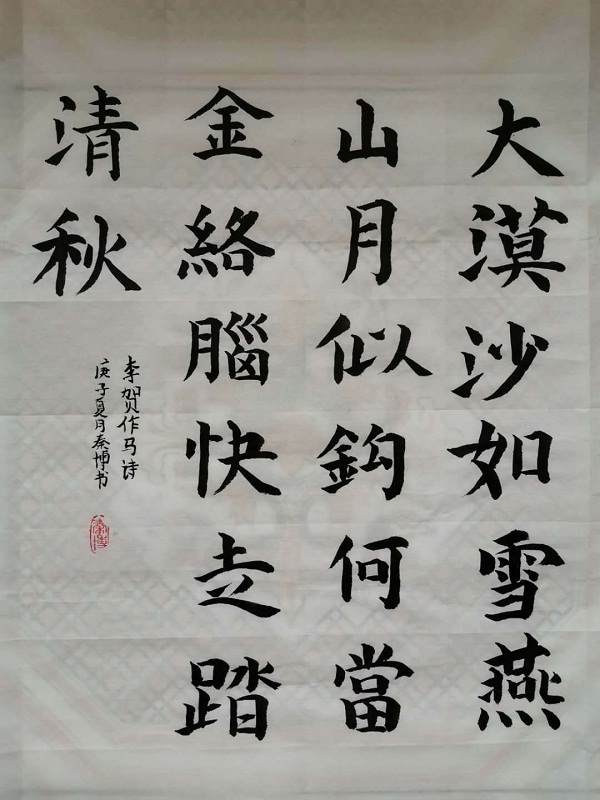 大漠沙如雪燕
山月似鈎何當
金絡腦快走踏
清秋
李贺作马诗
庚子夏月秦博书